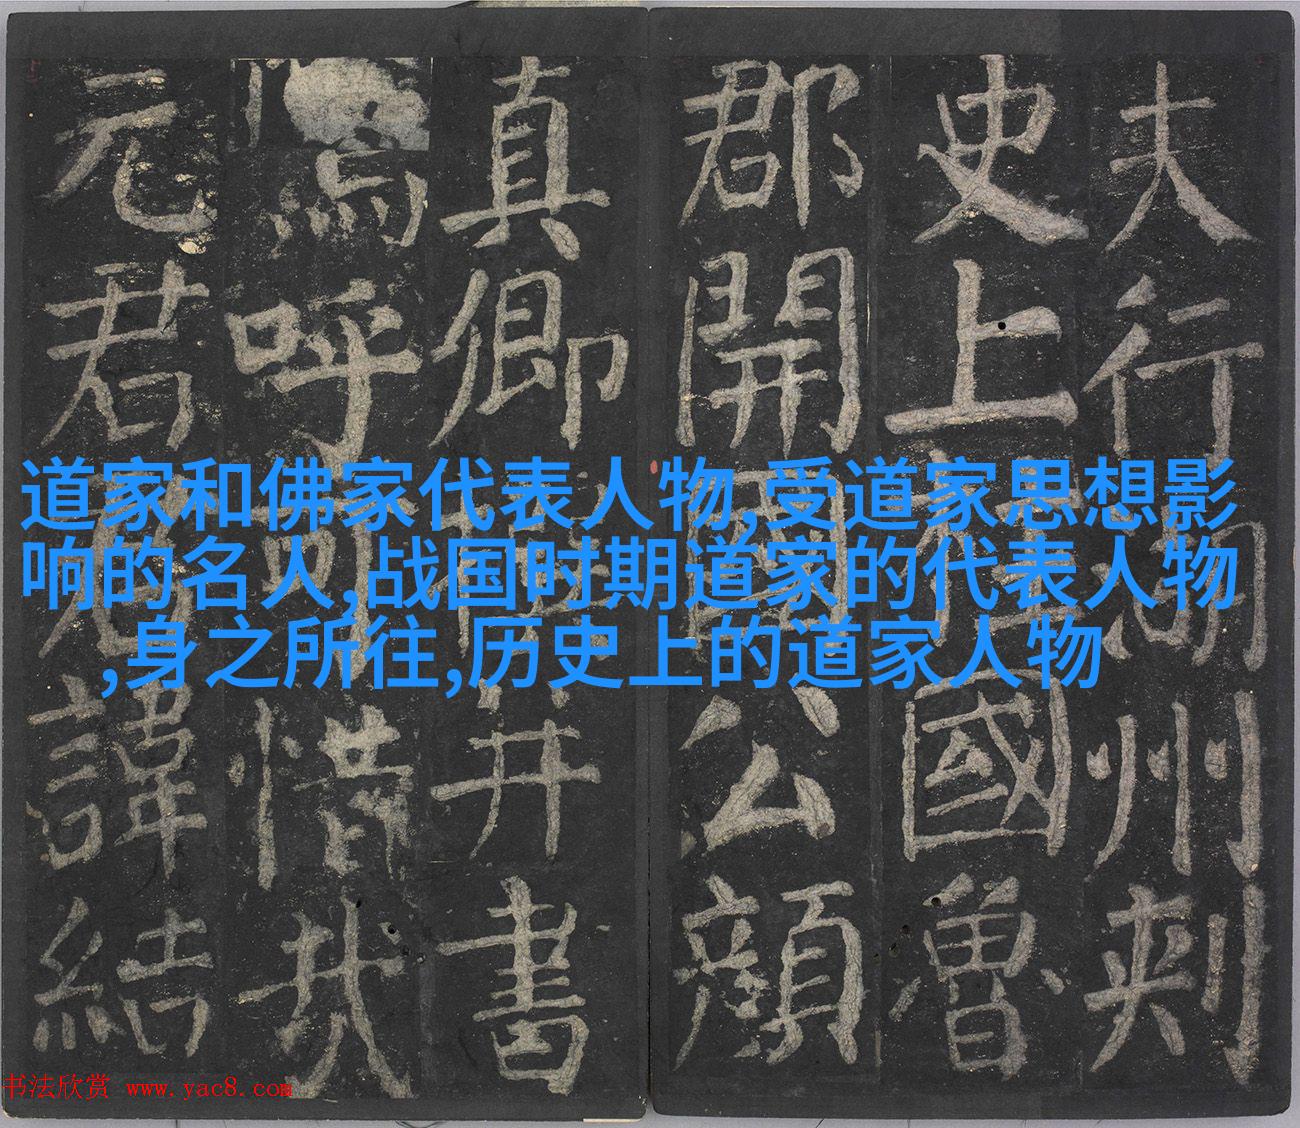 夫行湖州刺
史上柱國魯
郡開國公顏
真卿并書
嗚呼惜哉
元君諱結
道家和佛家代表人物,受道家思想影
响的名人,战国时期道家的代表人物
,身之所往,历史上的道家人物
书法欣赏 www.yac8.com